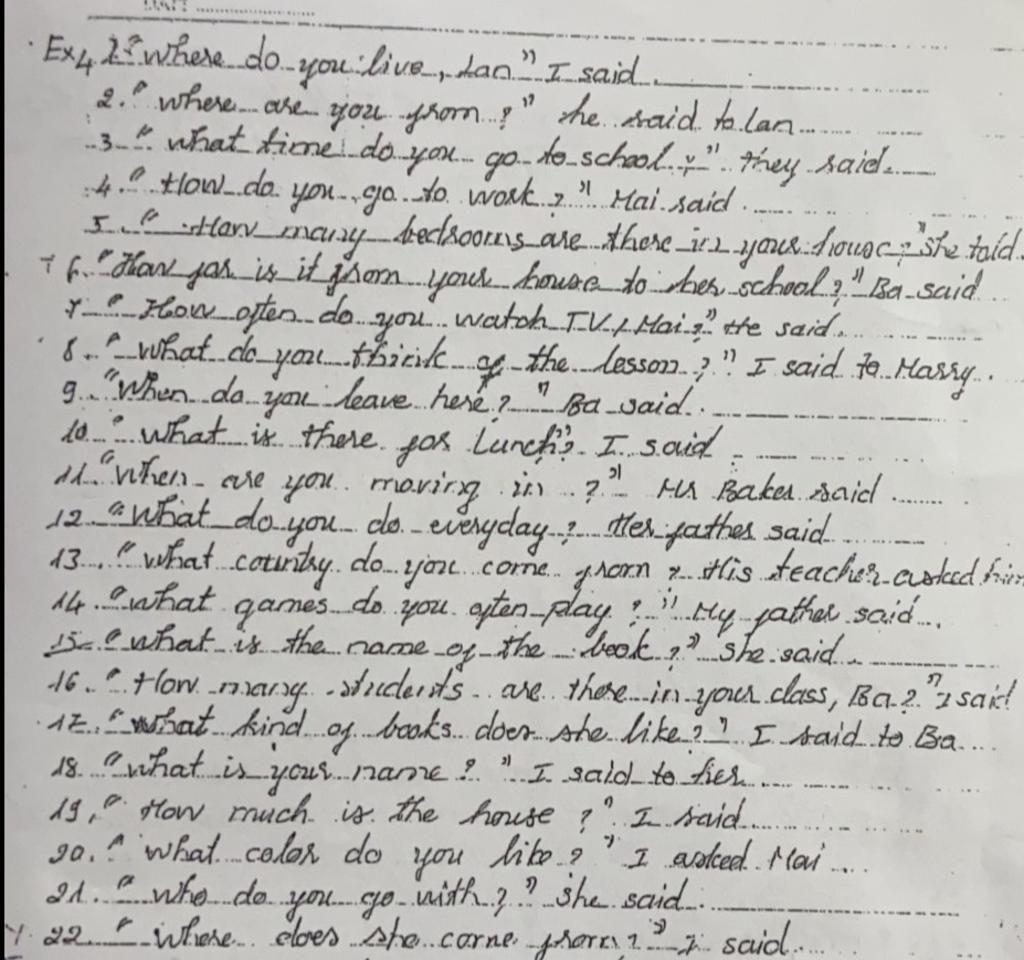 Ex4 1. "Where do you live, Lan" I said.
2. "Where are you from?" she said to Lan
3. "What time do you go to school?" they said.
4. "How do you go to work?" Mai said.
5. "How many bedrooms are there in your house?" she told.
6. "How far is it from your house to her school?" Ba said
7. "How often do you watch TV, Mai?" He said.
8. "What do you think of the lesson?" I said to Harry.
9. "When do you leave here?" Ba said.
10. "What is there for lunch"? I said
11. "When are you moving in ?" Mr Baker said
12. "What do you do everyday? Her father said
13. "What country do you come from? His teacher asked him
14. "What games do you often play?" My father said.
15. "What is the name of the book?" she said.
16. "How many students are there in your class, Ba?" I said
17. "What kind of books does she like?" I said to Ba
18. "What is your name?" I said to her
19, "How much is the house?" I said
20. "What color do you like?" I asked Mai
21. "Who do you go with?" she said.
22. "Where does she come from?" I said